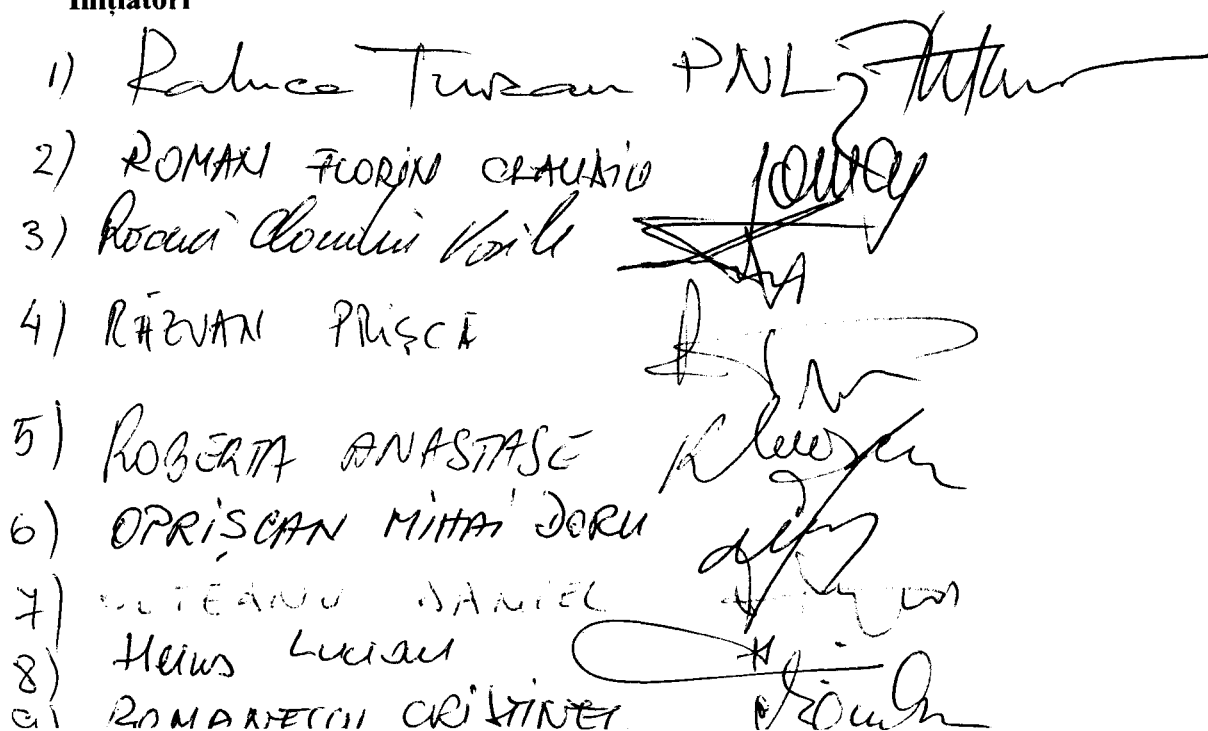 Inițiatori
1) Raluca Turcan PNL
2) ROMAN FLORIN CLAUDIU
3) Vasile
4) RĂZVAN PRIȘCĂ
5) ROBERTA ANASTASE
6) OPRIȘCAN MIHAI DORU
7) OLTEANU DANIEL
8) Heius Lucian
9) ROMANESCU CRISTINEL